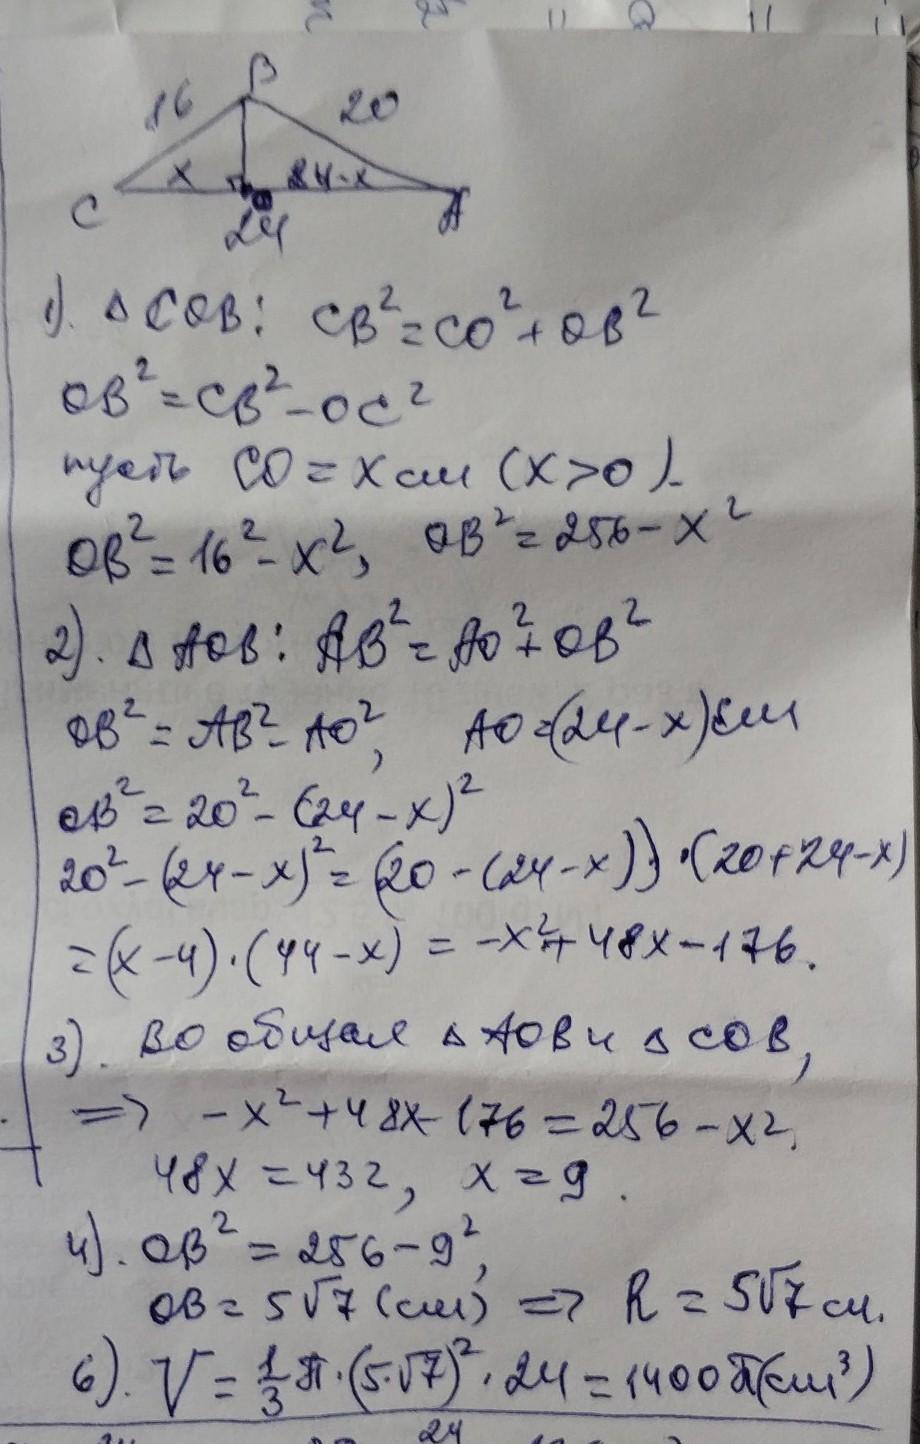 B
16 20
x 24-x
C 24 A
1). Δ COB: CB² = CO² + OB²
OB² = CB² - OC²
пусть CO = x см (x>0).
OB² = 16² - x², OB² = 256 - x²
2). Δ AOB: AB² = AO² + OB²
OB² = AB² - AO², AO = (24-x) см
OB² = 20² - (24-x)²
20² - (24-x)² = (20 - (24-x)) · (20+24-x)
= (x-4)·(44-x) = -x² + 48x - 176.
3). BO общая Δ AOB и Δ COB,
=> -x² + 48x - 176 = 256 - x².
48x = 432, x = 9.
4). OB² = 256 - 9²,
OB = 5√7 (см) => R = 5√7 см.
6). V = 1/3 π·(5·√7)²·24 = 1400π(см³)
24